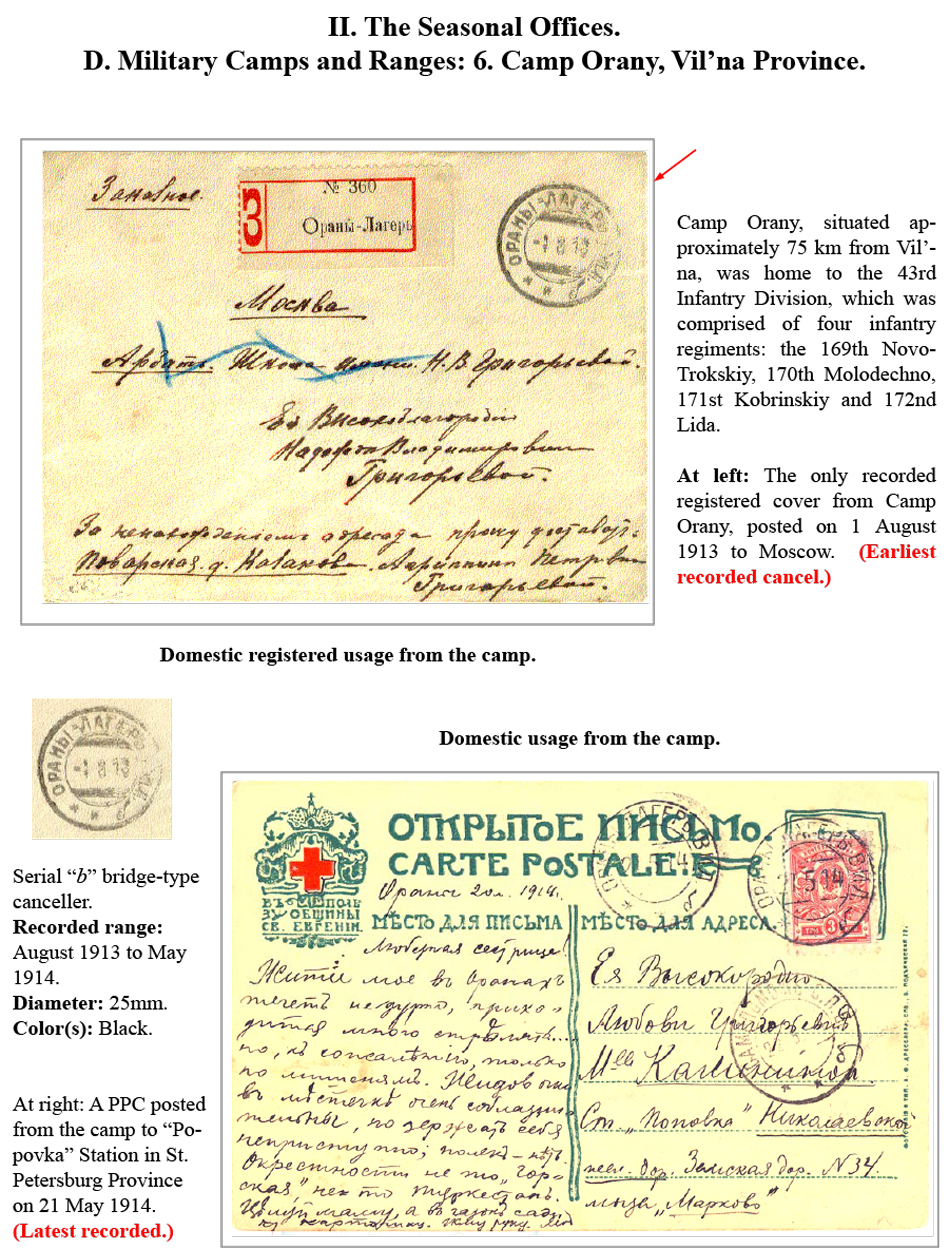 II. The Seasonal Offices.
D. Military Camps and Ranges: 6. Camp Orany, Vil’na Province.
Заказное.
№ 360
З
Ораны-Лагерь
ОРАНЫ-ЛАГЕРЬ ВИЛ.
-1 8 13
* и б *
Москва
Арбатъ. Школа имени Н. В. Григорьевой.
Ея Высокоблагородiю
Владимiровнѣ
Григорьевой.
За ненахожденiемъ адресата прошу доставить:
Поварская д. Казакова. Петровнѣ
Григорьевой.
Camp Orany, situated ap-
proximately 75 km from Vil’-
na, was home to the 43rd
Infantry Division, which was
comprised of four infantry
regiments: the 169th Novo-
Trokskiy, 170th Molodechno,
171st Kobrinskiy and 172nd
Lida.
At left: The only recorded
registered cover from Camp
Orany, posted on 1 August
1913 to Moscow. (Earliest
recorded cancel.)
Domestic registered usage from the camp.
ОРАНЫ-ЛАГЕРЬ ВИЛ.
-1 8 13
* и б *
Serial “b” bridge-type
canceller.
Recorded range:
August 1913 to May
1914.
Diameter: 25mm.
Color(s): Black.
At right: A PPC posted
from the camp to “Po-
povka” Station in St.
Petersburg Province
on 21 May 1914.
(Latest recorded.)
Domestic usage from the camp.
ОТКРЫТОЕ ПИСЬМО.
CARTE POSTALE.
ВЪ ПОЛЬ
ЗУ ОБЩИНЫ
СВ. ЕВГЕНIИ.
Ораны 20/V. 1914.
МѢСТО ДЛЯ ПИСЬМА
МѢСТО ДЛЯ АДРЕСА.
Любезная сестрица!
Житiе мое въ Оранахъ
течетъ недурно, прихо-
дится много стрѣлять...
но, къ сожалѣнiю, только
по мишенямъ.
въ мѣстечкѣ очень соблазни-
тельны, но держатъ себя
неприступно; полекъ - нѣтъ.
Окрестности не то „Гор-
ская", не то Туркестанъ.
Целую маму, а въ
Ея Высокородiю
Любови Григорьевнѣ
Mlle Калининой.
Ст. „Поповка" Николаевской
жел. дор. Земская дор. N34.
мыза „Марково"